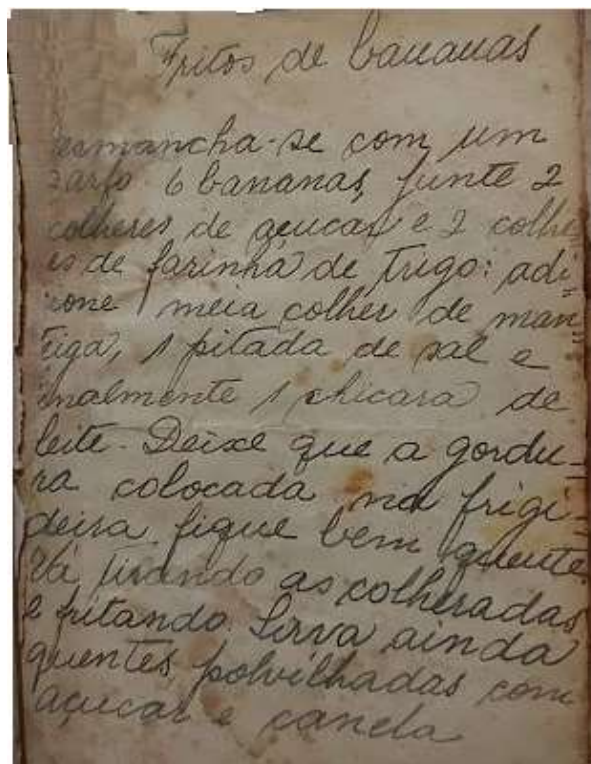 Fritos de bananas
esmancha-se com um
garfo 6 bananas, junte 2
colheres de açucar e 2 colhe-
es de farinha de trigo: adi-
cione meia colher de man-
teiga, 1 pitada de sal e
inalmente 1 chicara de
leite. Deixe que a gordu-
ra colocada na frigi-
deira fique bem quente.
Vá tirando as colheradas
e fritando. Sirva ainda
quentes polvilhadas com
açucar e canela